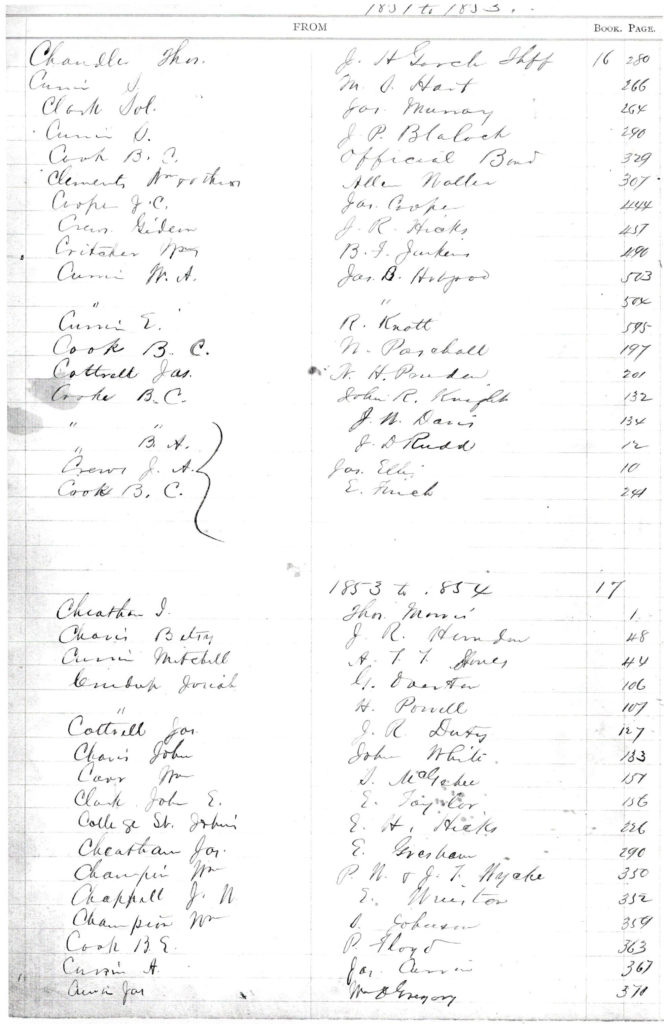 1851 to 1853.
FROM BOOK. PAGE.
Chandler Thos. J. H Gooch Shff 16 280
Currin S. M. S. Hart 266
Clark Sol. Jas. Murray 264
Currin S. J. P. Blalock 290
Cook B. C. Official Bond 329
Clements Wm & others Allen Walter 307
Cooper J. C. Jas. Cooper 444
Crews Gideon J. R. Hicks 457
Critcher Wm B. F. Jenkins 490
Currin W. A. Jas. B. Hobgood 503
" " 504
Currin E. R. Knott 595
Cook B. C. N. Paschall 197
Cottrell Jas. W. H. Pruden 201
Cooke B. C. John R. Knight 132
" " J. W. Davis 134
" B. A. J. D Rudd 12
Crews J. A. Jas. Ellis 10
Cook B. C. E. Finch 241
1853 to 1854 17
Cheatham I. Thos. Morris 1
Chavis Betsy J. R. Herndon 48
Currin Mitchell A. T. T. Jones 44
Crudup Josiah G. 106
" H. Powell 107
Cottrell Jas. J. R. Duty 127
Chavis John John White 133
Carr Wm S. McGehee 151
Clark John E. E. Taylor 156
College St. John's E. H. Hicks 226
Cheatham Jas. E. Gresham 290
Champion Wm P. W. & J. T. Wyche 350
Chappell J. W E. Winston 352
Champion Wm S. Johnson 359
Cook B E. P. Floyd 363
Currin A. Jas. Currin 367
Currin Jas Wm O Gregory 371